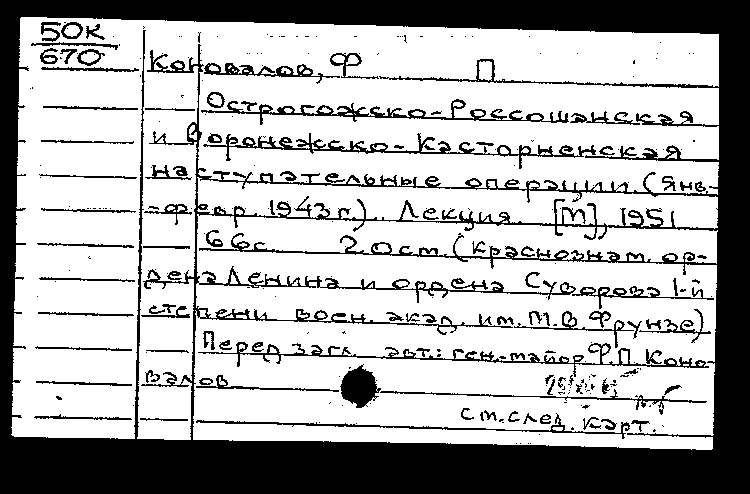 50К
670
Коновалов, Ф П.
Острогожско-Россошанская
и Воронежско-Касторненская
наступательные операции. (Янв.-
-февр. 1943 г.). Лекция. [М], 1951
66с. 20 ст. (Краснознам. ор-
дена Ленина и ордена Суворова 1-й
степени воен. акад. им. М.В. Фрунзе)
Перед загл. авт.: ген.-майор Ф.П. Коно-
валов
ст. след. карт.